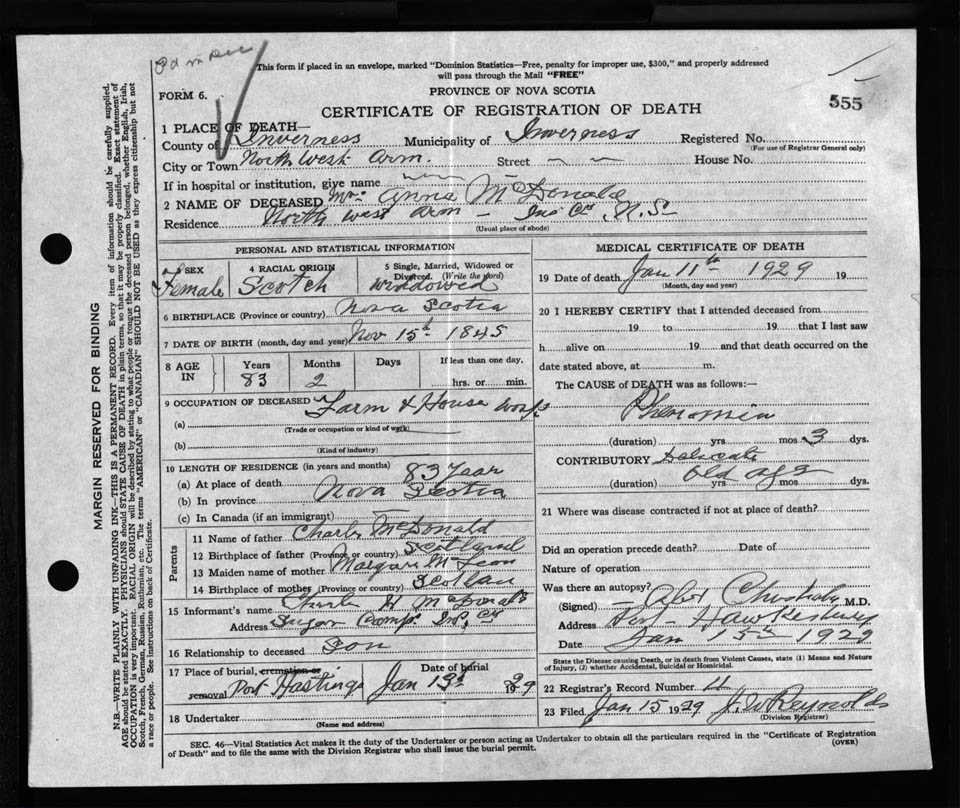 This form if placed in an envelope, marked "Dominion Statistics—Free, penalty for improper use, $300," and properly addressed
will pass through the Mail "FREE"
555
FORM 6.
PROVINCE OF NOVA SCOTIA
CERTIFICATE OF REGISTRATION OF DEATH
1 PLACE OF DEATH—
County of Inverness Municipality of Inverness Registered No.
(For use of Registrar General only)
City or Town North West Arm. Street House No.
If in hospital or institution, give name
2 NAME OF DECEASED Mrs Annie McDonald
Residence North West Arm - Inv Co, N.S
(Usual place of abode)
PERSONAL AND STATISTICAL INFORMATION
3 SEX Female
4 RACIAL ORIGIN Scotch
5 Single, Married, Widowed or Divorced. (Write the word) Widowed
6 BIRTHPLACE (Province or country) Nova Scotia
7 DATE OF BIRTH (month, day and year) Nov 15th 1845
8 AGE IN Years 83 Months 2 Days If less than one day, hrs. or min.
9 OCCUPATION OF DECEASED Farm & House work
(a)
(Trade or occupation or kind of work)
(b)
(Kind of industry)
10 LENGTH OF RESIDENCE (in years and months)
(a) At place of death 83 Year
(b) In province Nova Scotia
(c) In Canada (if an immigrant)
Parents
11 Name of father Charles McDonald
12 Birthplace of father (Province or country) Scotland
13 Maiden name of mother Margaret McLean
14 Birthplace of mother (Province or country) Scotland
15 Informant's name Charles McDonald
Address Sugar Camp Inv, Co
16 Relationship to deceased Son
17 Place of burial, cremation or removal Port Hastings Date of burial Jan 13th 1929
18 Undertaker
(Name and address)
MEDICAL CERTIFICATE OF DEATH
19 Date of death Jan 11th 1929 19
(Month, day and year)
20 I HEREBY CERTIFY that I attended deceased from
, 19 to 19 that I last saw
h alive on 19 and that death occurred on the
date stated above, at m.
The CAUSE of DEATH was as follows:—
Phenomia
(duration) yrs mos 3 dys.
CONTRIBUTORY Delicate
old age
(duration) yrs mos. dys.
21 Where was disease contracted if not at place of death?
Did an operation precede death? Date of
Nature of operation
Was there an autopsy?
(Signed) M.D.
Address Hawkesbury
Date Jan 15th 1929
State the Disease causing Death, or in death from Violent Causes, state (1) Means and Nature
of Injury, (2) whether Accidental, Suicidal or Homicidal.
22 Registrar's Record Number 11
23 Filed Jan 15 1929 J. W Reynolds
(Division Registrar)
SEC. 46—Vital Statistics Act makes it the duty of the Undertaker or person acting as Undertaker to obtain all the particulars required in the "Certificate of Registration
of Death" and to file the same with the Division Registrar who shall issue the burial permit. (OVER)
MARGIN RESERVED FOR BINDING
N.B.—WRITE PLAINLY WITH UNFADING INK—THIS IS A PERMANENT RECORD. Every item of information should be carefully supplied.
AGE should be stated EXACTLY. PHYSICIANS should STATE CAUSE OF DEATH in plain terms, so that it may be properly classified. Exact statement of
OCCUPATION is very important. RACIAL ORIGIN will be described by stating to what people or tongue the deceased person belonged, whether English, Irish,
Scotch, French, German, Russian, Ruthenian, etc. The terms "AMERICAN" or "CANADIAN" SHOULD NOT BE USED as they express citizenship but not
a race or people. See instructions on back of Certificate.